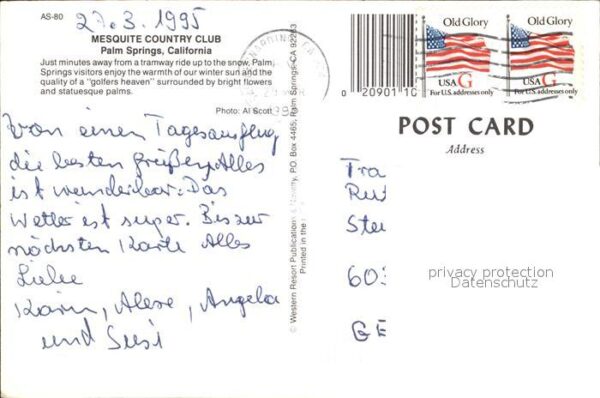 AS-80
27.3.1995
MESQUITE COUNTRY CLUB
Palm Springs, California
Just minutes away from a tramway ride up to the snow, Palm
Springs visitors enjoy the warmth of our winter sun and the
quality of a "golfers heaven" surrounded by bright flowers
and statuesque palms.
Photo: Al Scott
Von einem Tagesausflug
die besten Grüße, Alles
ist wunderbar. Das
Wetter ist super. Bis zur
nächsten Karte Alles
Liebe
Karin, Alexe, Angela
und Susi
© Western Resort Publications
PO Box 4465, Palm Springs, CA 92263
Printed in the
Old Glory
USA G
For U.S. addresses only
Old Glory
USA G
For U.S. addresses only
0 20901 10
POST CARD
Address
Ste
603
GE
privacy protection
Datenschutz